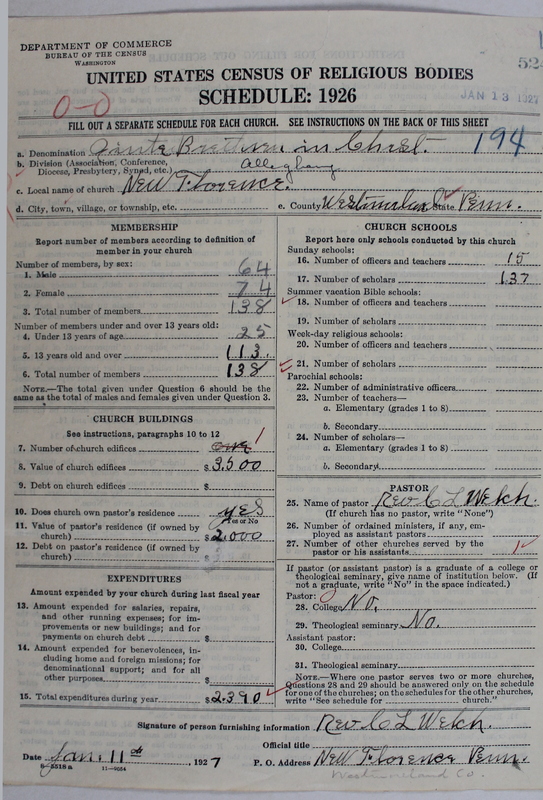 DEPARTMENT OF COMMERCE
BUREAU OF THE CENSUS
WASHINGTON
UNITED STATES CENSUS OF RELIGIOUS BODIES
SCHEDULE: 1926
JAN 13 1927
0-0
FILL OUT A SEPARATE SCHEDULE FOR EACH CHURCH. SEE INSTRUCTIONS ON THE BACK OF THIS SHEET
a. Denomination Brethren in Christ. 194
b. Division (Association, Conference, Diocese, Presbytery, Synod, etc.) Allegheny
c. Local name of church New Florence.
d. City, town, village, or township, etc. e. County Westmorland State Penn.
MEMBERSHIP
Report number of members according to definition of member in your church
Number of members, by sex:
1. Male 64
2. Female 74
3. Total number of members 138
Number of members under and over 13 years old:
4. Under 13 years of age 25
5. 13 years old and over 113
6. Total number of members 138
NOTE.—The total given under Question 6 should be the same as the total of males and females given under Question 3.
CHURCH BUILDINGS
See instructions, paragraphs 10 to 12
7. Number of church edifices one 1
8. Value of church edifices $ 3500
9. Debt on church edifices $
10. Does church own pastor's residence? yes
Yes or No
11. Value of pastor's residence (if owned by church) $ 2,000
12. Debt on pastor's residence (if owned by church) $
EXPENDITURES
Amount expended by your church during last fiscal year
13. Amount expended for salaries, repairs, and other running expenses; for improvements or new buildings; and for payments on church debt $
14. Amount expended for benevolences, including home and foreign missions; for denominational support; and for all other purposes $
15. Total expenditures during year $ 2,390
CHURCH SCHOOLS
Report here only schools conducted by this church
Sunday schools:
16. Number of officers and teachers 15
17. Number of scholars 137
Summer vacation Bible schools:
18. Number of officers and teachers
19. Number of scholars
Week-day religious schools:
20. Number of officers and teachers
21. Number of scholars
Parochial schools:
22. Number of administrative officers
23. Number of teachers—
a. Elementary (grades 1 to 8)
b. Secondary
24. Number of scholars—
a. Elementary (grades 1 to 8)
b. Secondary
PASTOR
25. Name of pastor Rev C L Welch.
(If church has no pastor, write "None")
26. Number of ordained ministers, if any, employed as assistant pastors
27. Number of other churches served by the pastor or his assistants 1
If pastor (or assistant pastor) is a graduate of a college or theological seminary, give name of institution below. (If not a graduate, write "No" in the space indicated.)
Pastor:
28. College No.
29. Theological seminary No.
Assistant pastor:
30. College
31. Theological seminary
NOTE.—Where one pastor serves two or more churches, Questions 28 and 29 should be answered only on the schedule for one of the churches; on the schedules for the other churches, write "See schedule for church."
Signature of person furnishing information Rev C L Welch.
Official title
Date Jan. 11th, 1927 P. O. Address New Florence Penn.
Westmoreland Co.
8—5518a 11—9084